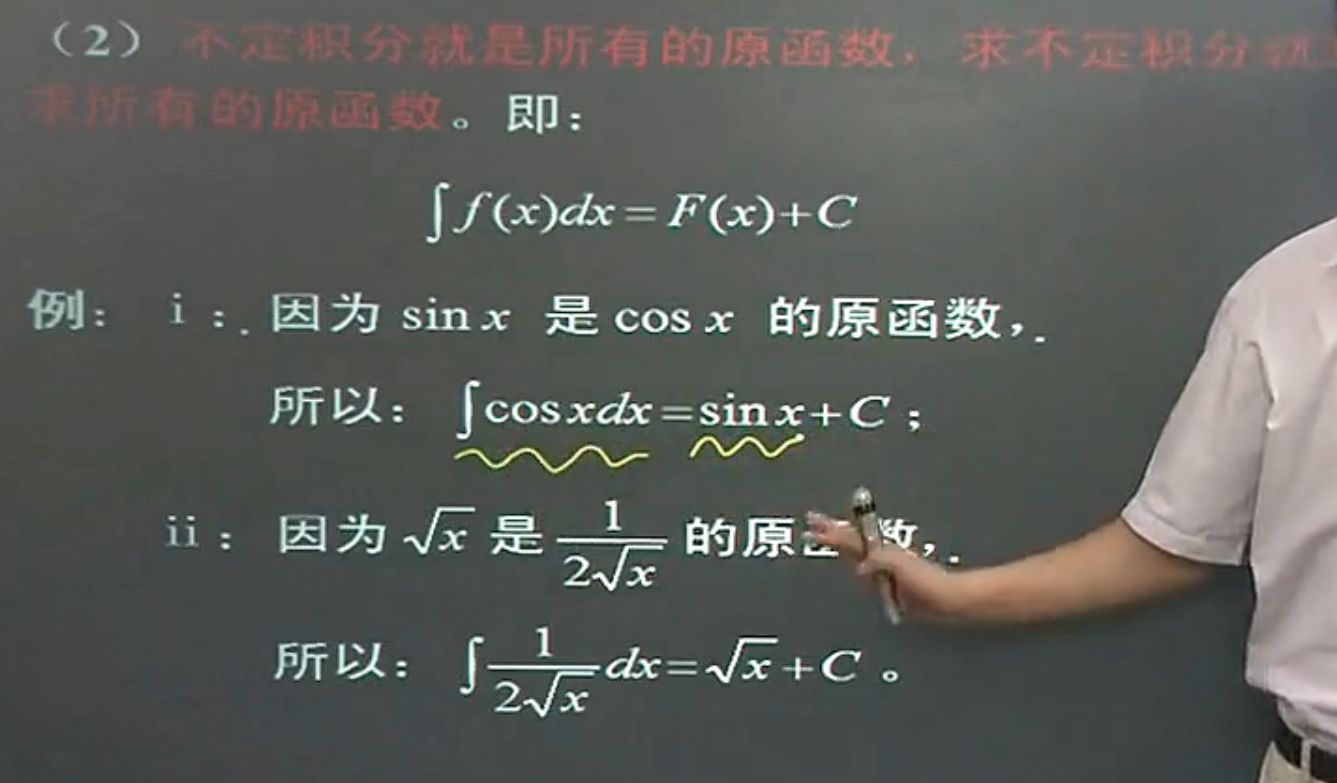 （2） 不定积分就是所有的原函数，求不定积分就
求所有的原函数。即：
∫f(x)dx=F(x)+C
例： i：. 因为 sin x 是 cos x 的原函数，.
所以： ∫cos xdx=sin x+C；
ii： 因为 √x 是 1/(2√x) 的原函数，.
所以： ∫1/(2√x)dx=√x+C 。